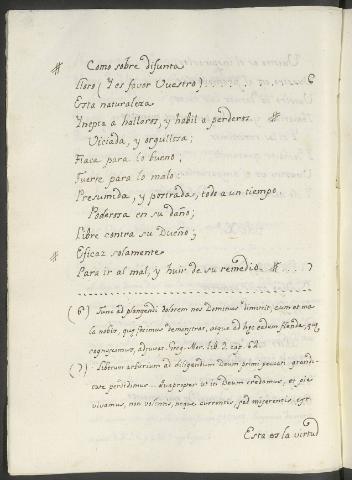 # Como sobre difunta
lloro (Y es favor Vuestro) . . . . . 6
Esta naturaleza
Ynepta a hallaros, y habil a perderos #
Viciada, y orgullosa;
Flaca para lo bueno;
Fuerte para lo malo:
Presumida, y postrada, todo a un tiempo
Poderosa en su daño;
Libre contra su Dueño;
# Eficaz solamente
Para ir al mal, y huir de su remedio # . . . 7
(6) Tunc ad plangendi dolorem nos Dominus dimittit, cum et ma
la nobis, quę fecimus demonstrat, atque ad hęc eadem flenda, quę
cognoscimus, adjuvat. Greg. Mor. lib. 9. cap. 62.
(7) Liberum arbitrium ad diligendum Deum primi peccati grandi-
tate perdidimus... Quapropter ut in Deum credamus, et pie
vivamus, non volentis, neque currentis, sed miserentis est
Esta es la virtud